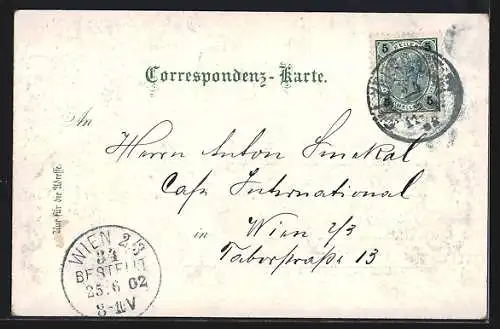 5 5
5 5
Correspondenz-Karte.
An
Herrn Anton Smekal
Cafe International
in Wien 2/3
Taborstraße 13
Nur für die Adresse.
WIEN 2/3
34
BESTELLT
25.6 02
8-11V